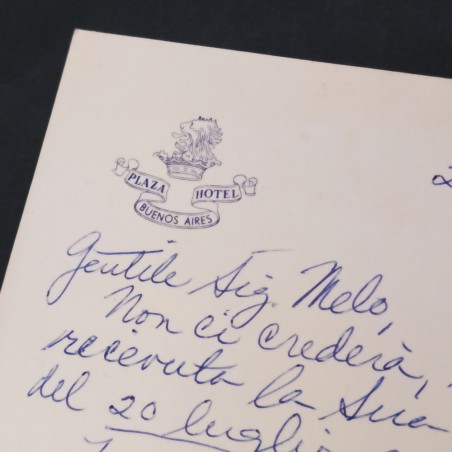 PLAZA HOTEL
BUENOS AIRES
Gentile Sig. Melo,
Non ci crederà,
ricevuta la Sua
del 20 luglio